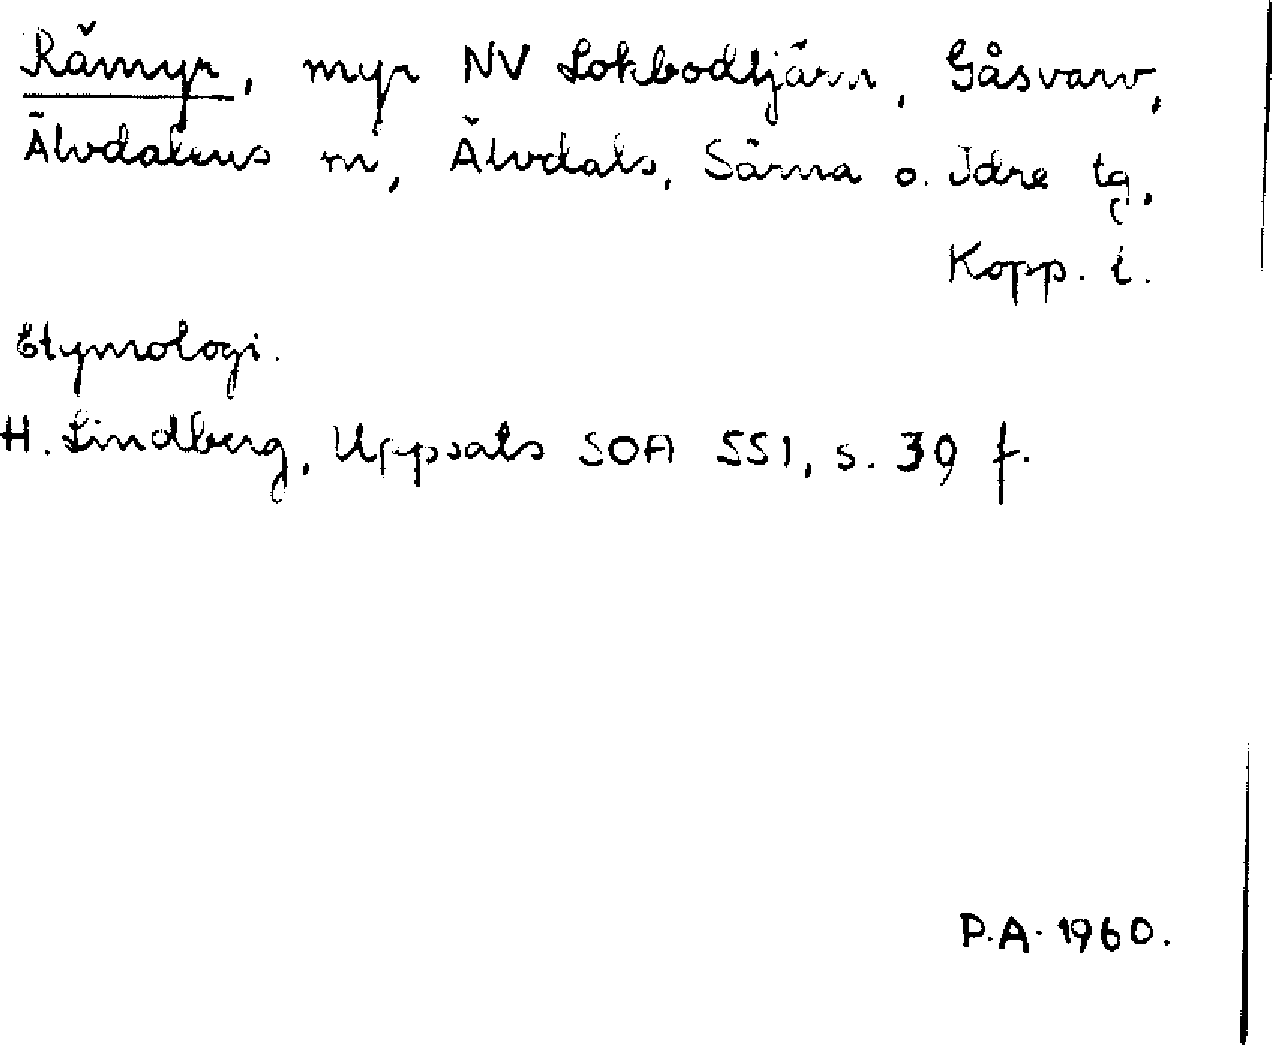 Rämyr, myr NV Lokbodtjärn, Gåsvarv,
Älvdalens m, Älvdals, Särna o. Idre tg,
Kopp. l.
Etymologi.
H. Lindberg, Uppsats SOA 551, s. 39 f.
P.A. 1960.